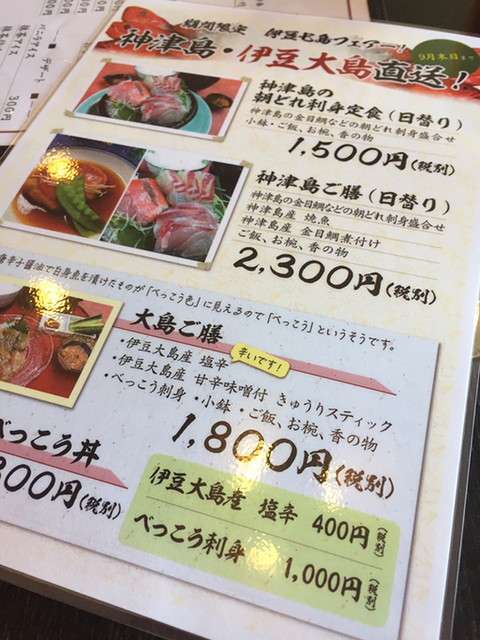 期間限定 伊豆七島フェアー!
神津島・伊豆大島直送!
9月末日まで
神津島の
朝どれ刺身定食(日替り)
神津島の金目鯛などの朝どれ刺身盛合せ
小鉢・ご飯、お椀、香の物
1,500円(税別)
神津島ご膳(日替り)
神津島の金目鯛などの朝どれ刺身盛合せ
神津島産 焼魚
神津島産 金目鯛煮付け
ご飯、お椀、香の物
2,300円(税別)
唐辛子醤油で白身魚を漬けたものが「べっこう色」に見えるので「べっこう」というそうです。
大島ご膳
・伊豆大島産 塩辛
辛いです!
・伊豆大島産 甘辛味噌付 きゅうりスティック
・べっこう刺身 ・小鉢・ご飯、お椀、香の物
1,800円(税別)
べっこう丼
800円(税別)
伊豆大島産 塩辛 400円(税別)
べっこう刺身 1,000円(税別)
デザート
バニラアイス
抹茶アイス
300円